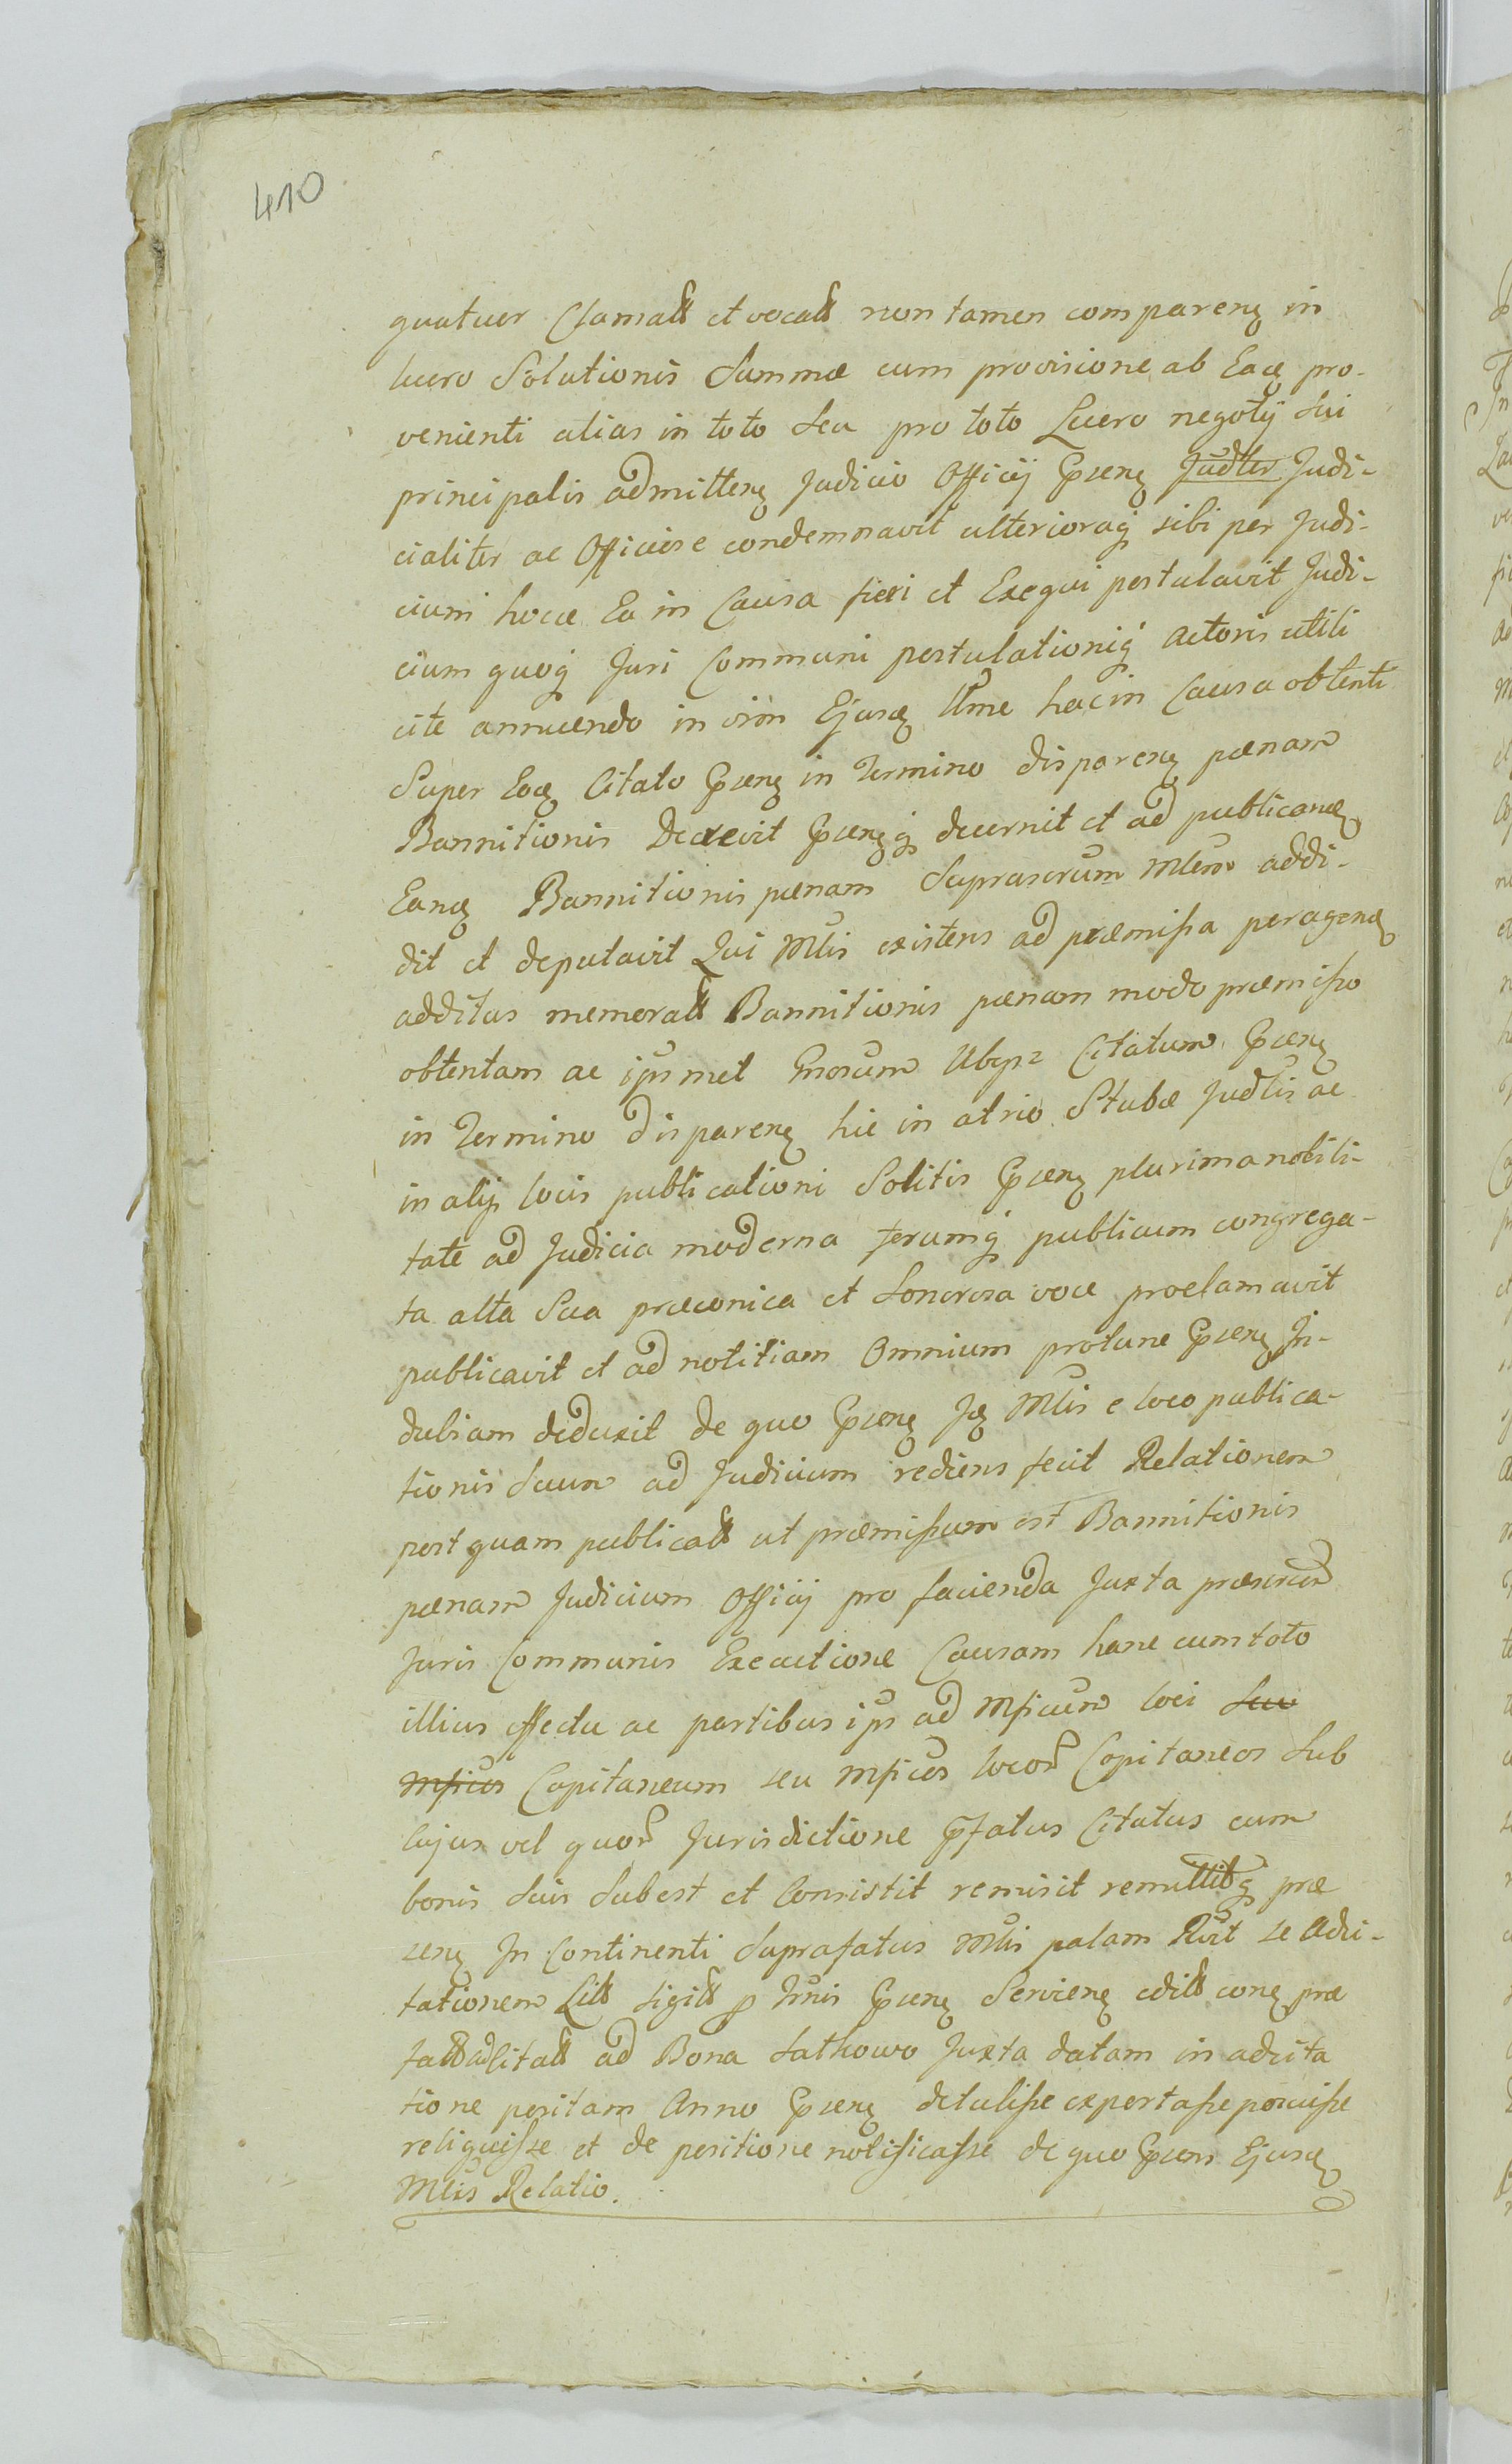 410
quatuor Clamatt et vocatt non tamen comparenz in
lucro Solutionis Summæ cum provisione ab Eaq pro-
venienti alias in toto seu pro toto Lucro negotij sui
principalis admittenz Judicio Officij Gpsenz Judler Judi-
cialiter ac Officiose condemnavit ulterioraq sibi per Judi-
cium hocce Ea in Causa fieri et Exequi postulavit Judi-
cium quoq Juri Communi postulationiq Actoris utili
cite annuendo in vim Ejusq hac in Causa obtenti
Super Eoq Citato Gpsenz in Termino disparenz pænam
Bannitionis Decrevit Gpsenzq decernit et ad publicanq
Eanq Bannitionis pænam Suprascrum Mlem addi-
dit et deputavit Qui Mlis existens ad præmissa peragenq
additus memoratt Bannitionis pænam modo præmisso
obtentam ac ipsmet Gnosum Citatum Gpsenz
in Termino disparenz hic in atrio Stubæ Judlis ac
in alijs locis publicationi Solitis Gpsenz plurima nobili-
tate ad Judicia moderna forumq publicum congrega-
ta alta Sua præconica et Sonorosa voce proclamavit
publicavit et ad notitiam Omnium protunc Gpsenz In-
dubiam deduxit de quo Gpsenz Jq Mlis e loco publica-
tionis Suum ad Judicium rediens fecit Relationem
post quam publicatt ut præmissum est Bannitionis
pænam Judicium Officij pro facienda Juxta præscrum
Juris Communis Executione Causam hanc cum toto
illius effectu ac partibus ips ad Mficum loci seu
Mficos Capitaneum seu Mficos locor Capitaneos Sub
Cujus vel quor Jurisdictione Gpfatus Citatus cum
bonis Suis Subest et Consistit remisit remittitq præ
senz In Continenti Suprafatus Mlis palam Rvit se Adci-
tationem Litt Sigill p Gpsenz Servienz editt conz præ
fatt adcitatt ad Bona Juxta datam in adcita
tione positam Anno Gpsenz detulisse exportasse posuisse
reliquisse et de positione notificasse de quo Gpsens Ejusq
Mlis Relatio.